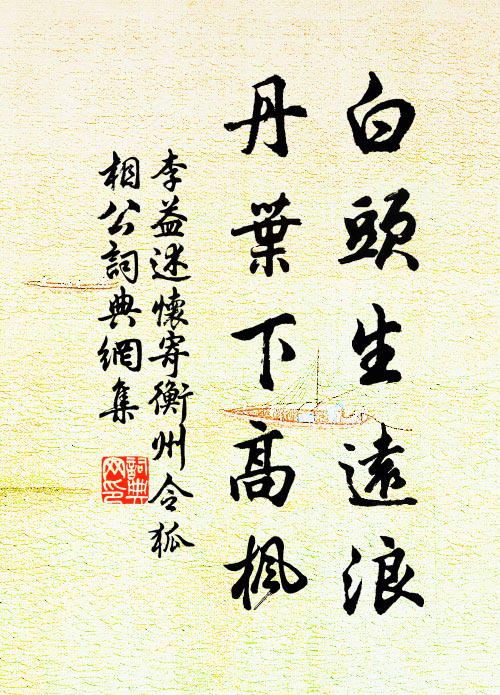 白頭生遠浪
丹葉下高楓
李益述懷寄衡州令狐
相公詞典網集
詞典
网印